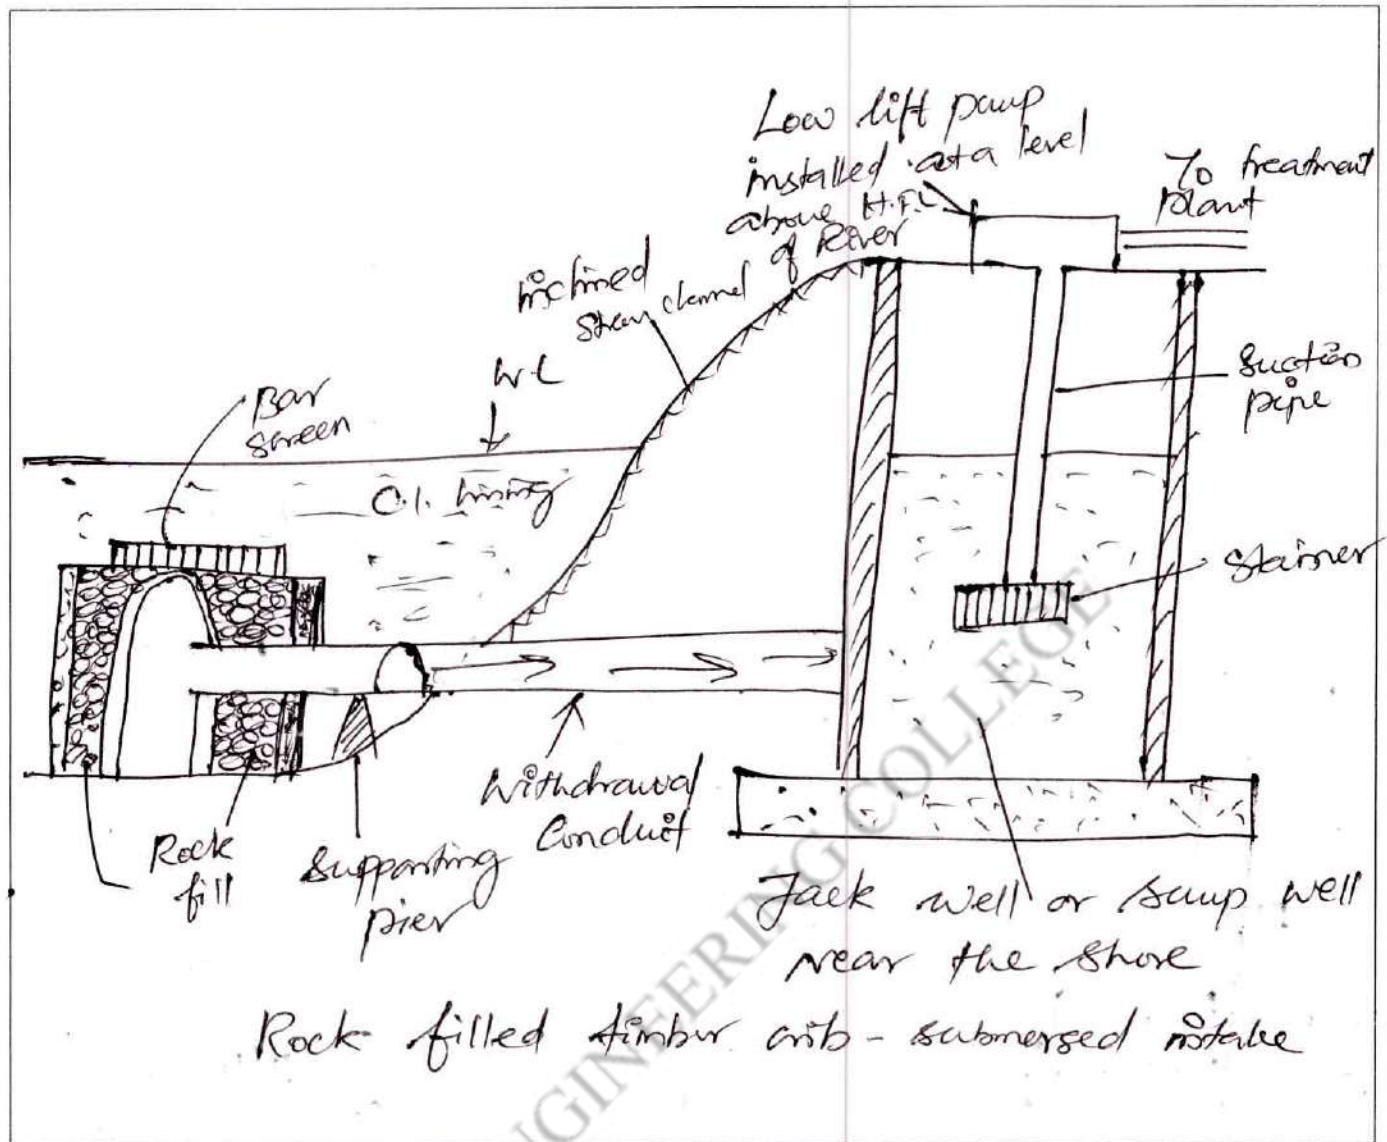 Low lift pump
installed at a level
above H.F.L
of River
To treatment
plant
inclined
channel
W.L
Bar
screen
C.I. lining
Suction
pipe
Stainer
Withdrawal
Conduit
Rock
fill
Supporting
pier
Jack well or sump well
near the shore
Rock filled timber crib - submersed intake
NGINEERING COLLEGE